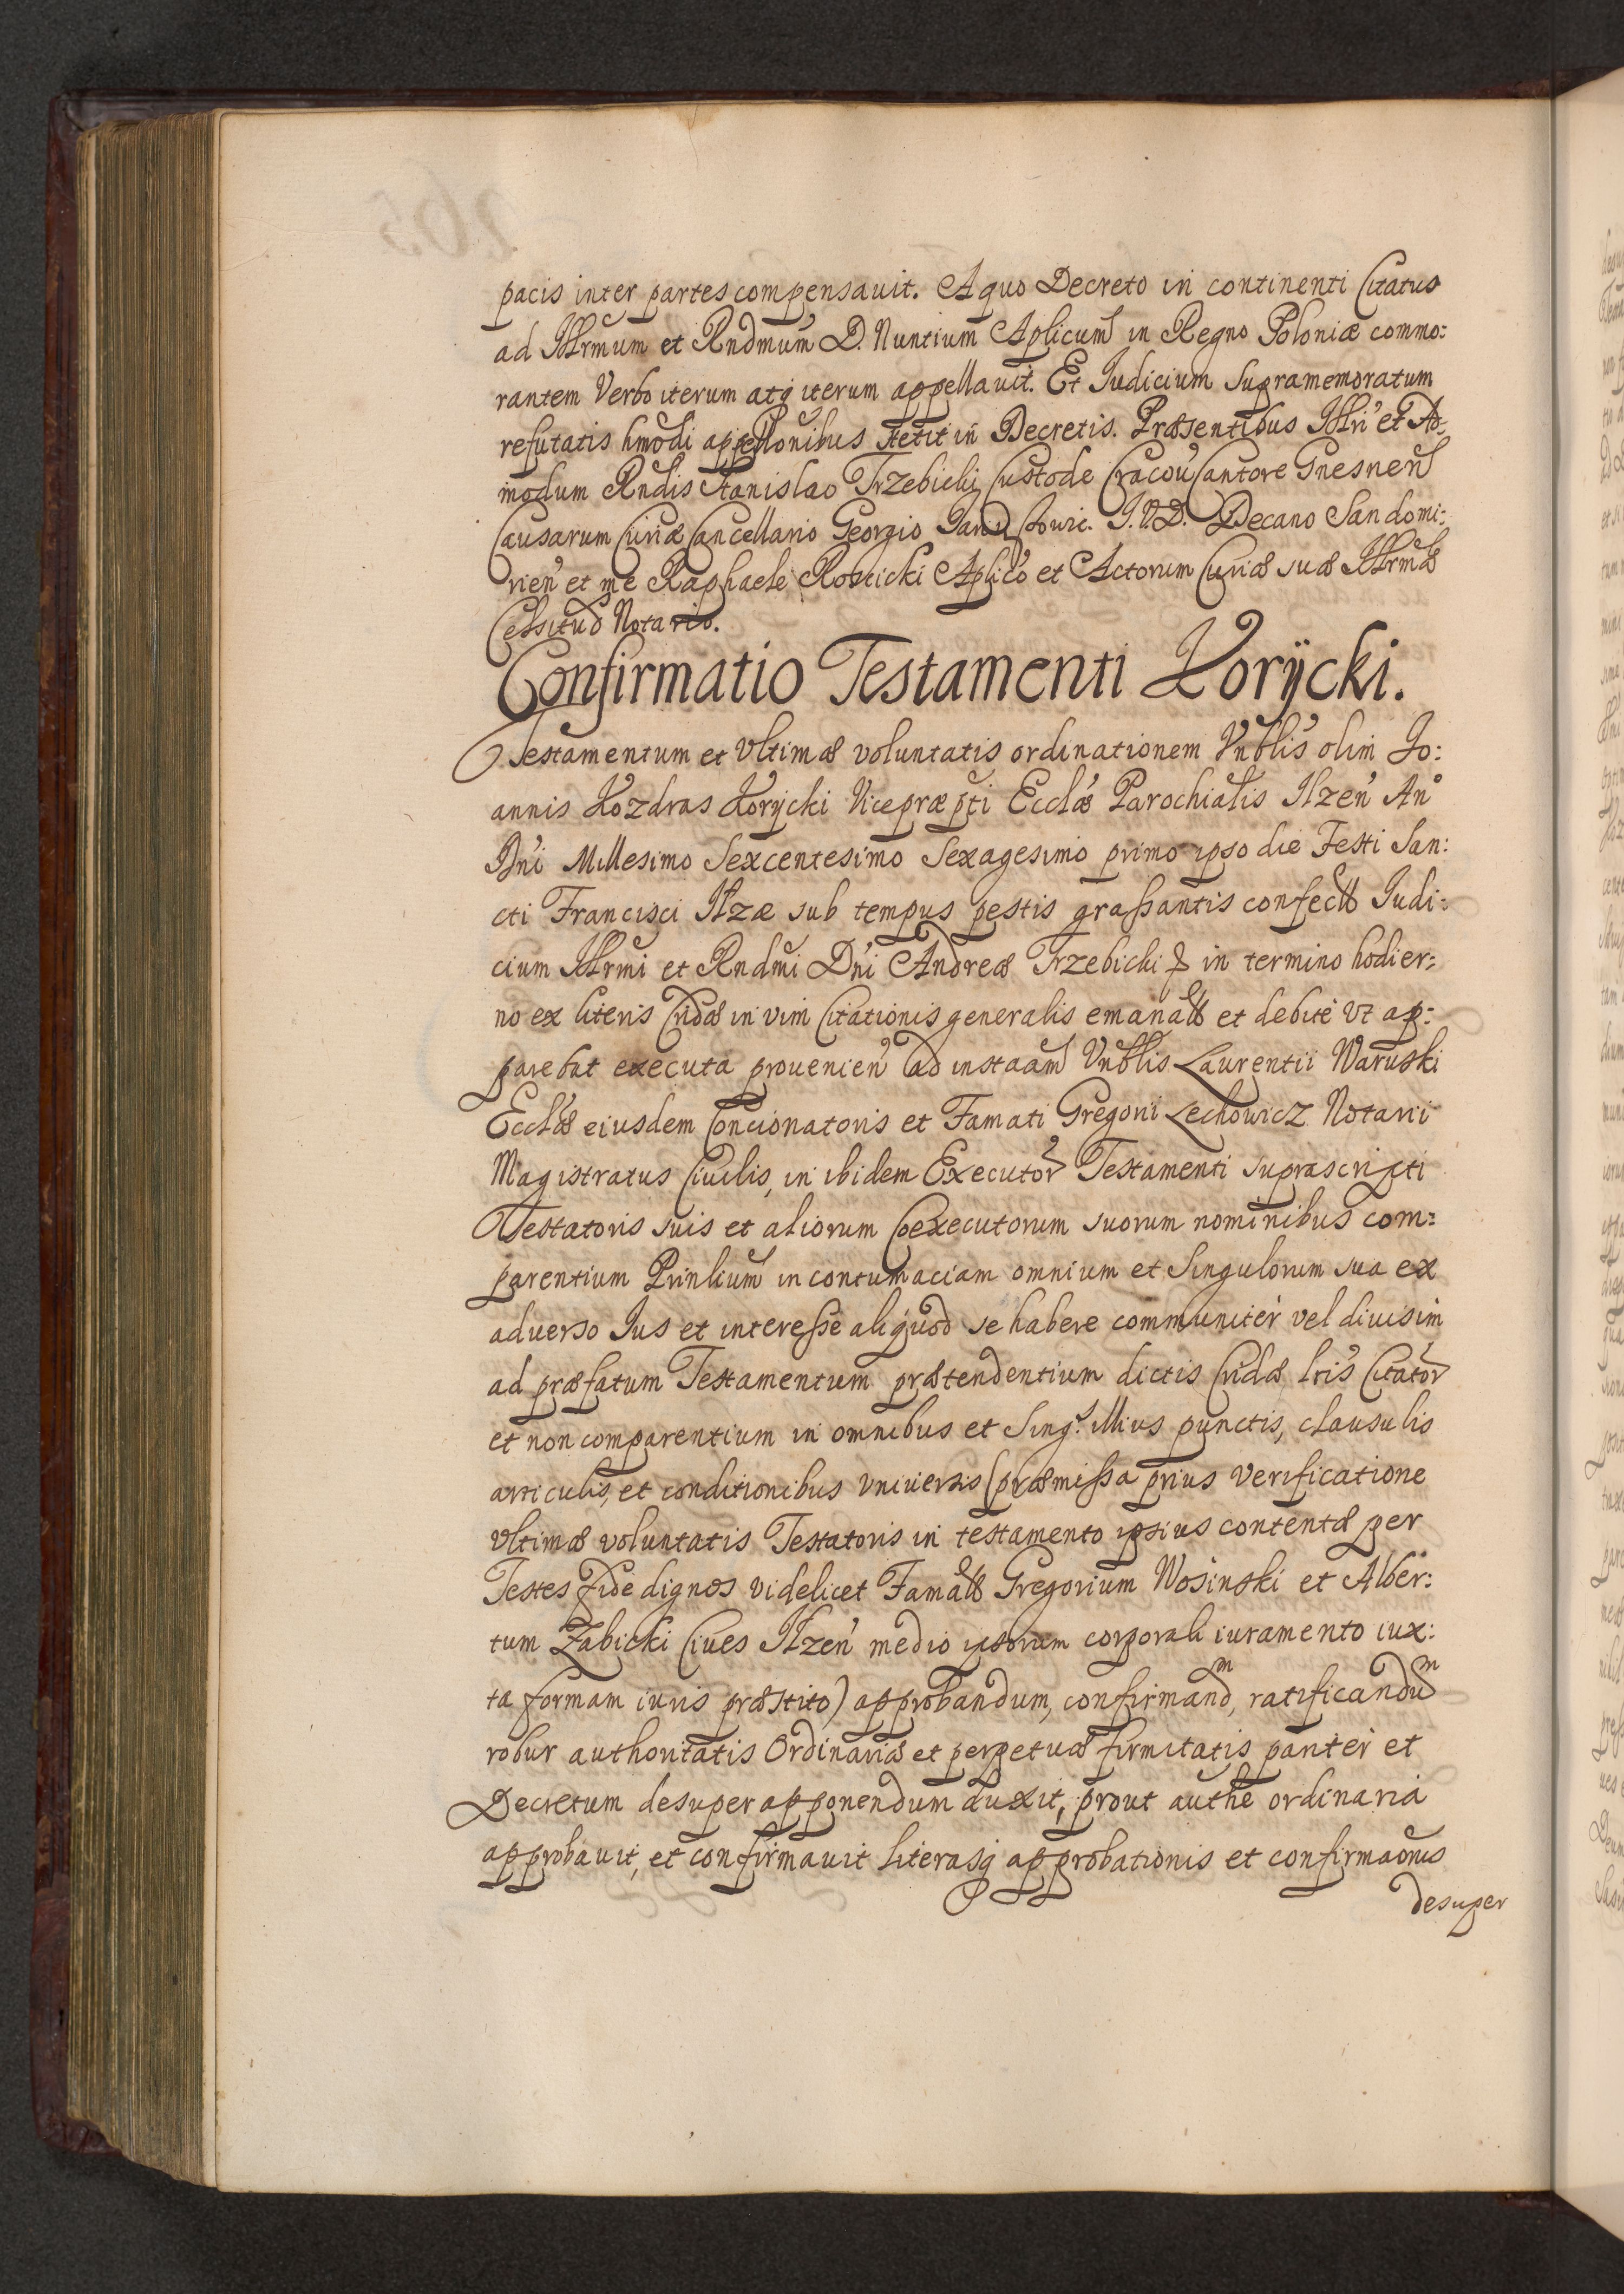 pacis inter partes compensauit. A quo Decreto in continenti Citatus
ad Illrmum et Rndmum D. Nuntium Aplicum in Regno Poloniæ commo:
rantem Verbo iterum atq iterum appellauit. Et Iudicium supramemoratum
refutatis hmodi appellonibus stetit in Decretis. Præsentibus Illri et Ad:
modum Rndis Stanislao Trzebicki Custode Cracou Cantore Gnesnen
Causarum Curiæ Cancellario Georgio I.V.D. Decano Sandomi:
rien et me Raphaele Aplico et Actorum Curiæ suæ Illrmæ
Celsitud Notario.
Confirmatio Testamenti Korÿcki.
Testamentum et Vltimæ voluntatis ordinationem Vnblis olim Jo:
annis Kozdras Korÿcki Vicepræpti Ecclæ Parochialis Ilzen An°
Dni Millesimo Sexcentesimo Sexagesimo primo ipso die Festi San:
cti Francisci Ilzæ sub tempus pestis grassantis confect Iudi:
cium Illrmi et Rndmi Dni Andreæ Trzebicki in termino hodier:
no ex literis Cridæ in vim Citationis generalis emanat et debite vt ap:
parebat executa prouenien ad instaam Vnblis Laurentii Waruski
Ecclæ eiusdem Concionatoris et Famati Gregorii Lechowicz Notarii
Magistratus Ciuilis, in ibidem Executor Testamenti suprascripti
Testatoris suis et aliorum Coexecutorum suorum nominibus com:
parentium Prinlium in contumaciam omnium et Singulorum sua ex
aduerso Ius et interesse aliquod se habere communiter vel diuisim
ad præfatum Testamentum prætendentium dictis Cridæ lris Citator
et non comparentium in omnibus et Sing: illius punctis, clausulis
articulis, et conditionibus vniuersis (præmissa prius verificatione
vltimæ voluntatis Testatoris in testamento ipsius contentæ per
Testes fide dignos videlicet Famat Gregorium Wosinski et Alber:
tum Zabicki Ciues Ilzen medio ipsorum corporali iuramento iux:
ta formam iuris præstito) approbandum, confirmand^m, ratificandu^m
robur authoritatis Ordinariæ et perpetuæ firmitatis pariter et
Decretum desuper apponendum duxit, prout authe ordinaria
approbauit, et confirmauit literasq approbationis et confirmaonis
desuper